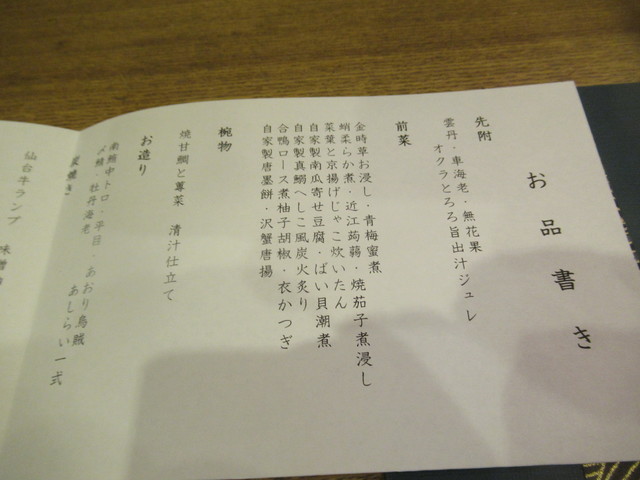 お品書き
先附
雲丹・車海老・無花果
オクラとろろ旨出汁ジュレ
前菜
金時草お浸し・青梅蜜煮
蛸柔らか煮・近江蒟蒻・焼茄子煮浸し
菜葉と京揚げじゃこ炊いたん
自家製南瓜寄せ豆腐・ばい貝潮煮
自家製真鯛へしこ風炭火炙り
合鴨ロース煮柚子胡椒・衣かつぎ
自家製唐墨餅・沢蟹唐揚
椀物
焼甘鯛と蓴菜　清汁仕立て
お造り
本鮪中トロ・平目　あおり烏賊
〆鯖・牡丹海老　あしらい一式
炭焼き
仙台牛ランプ　味噌